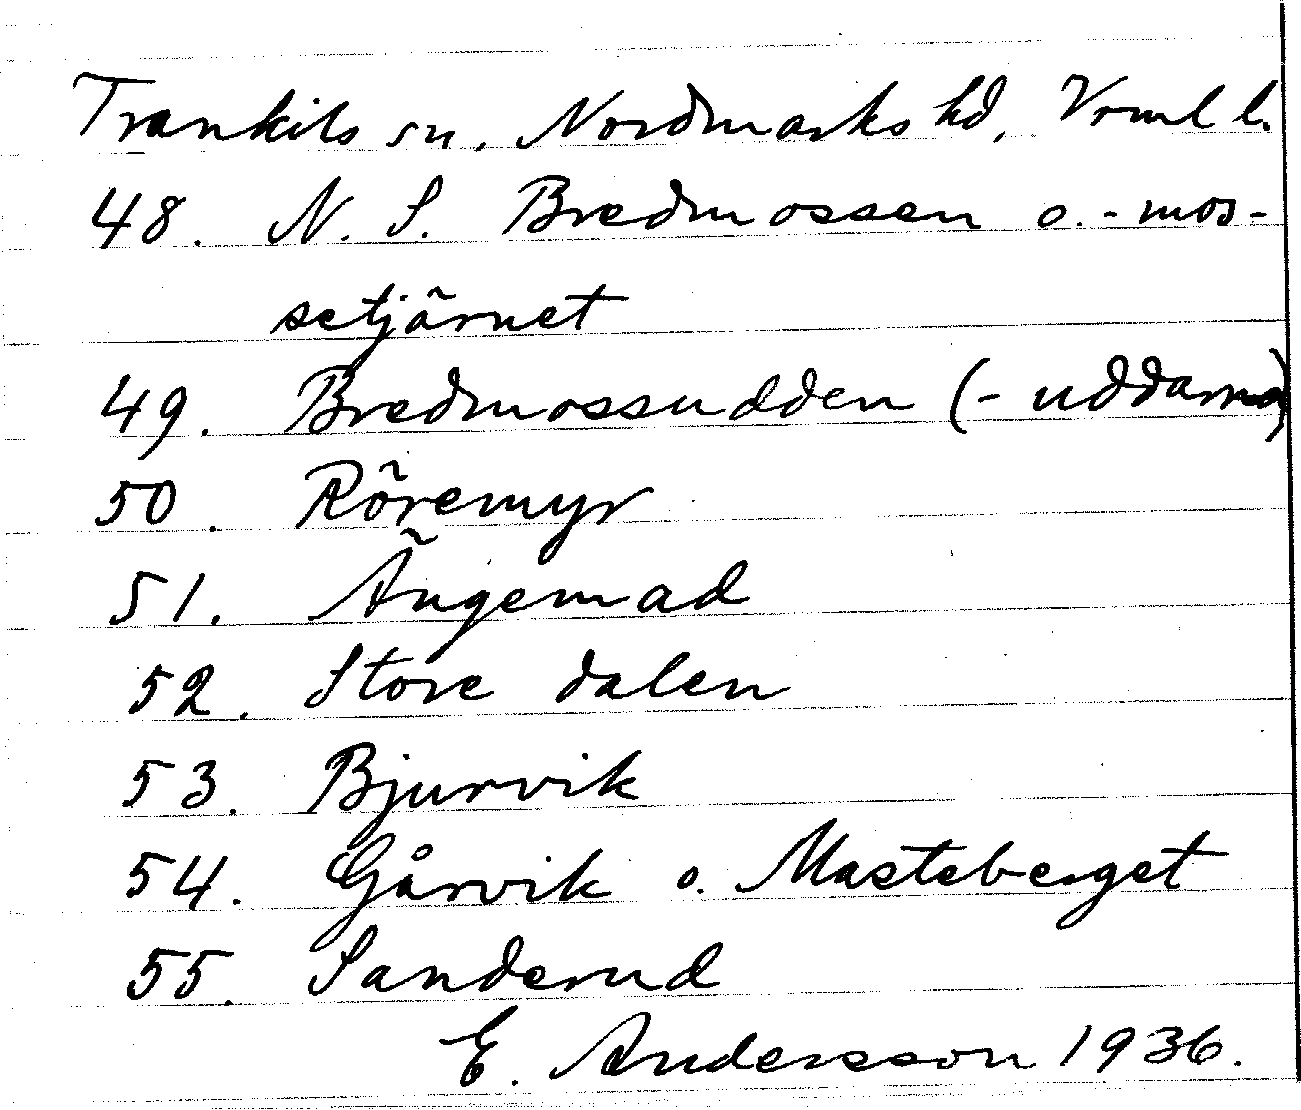 Trankils sn, Nordmarks hd, Vrml l.
48. N. S. Bredmossen o. -mos-
setjärnet
49. Bredmossudden (-uddarna)
50. Röremyr
51. Ängemad
52. Store dalen
53. Bjurvik
54. Gårvik o. Masteberget
55. Sanderud
E. Andersson 1936.